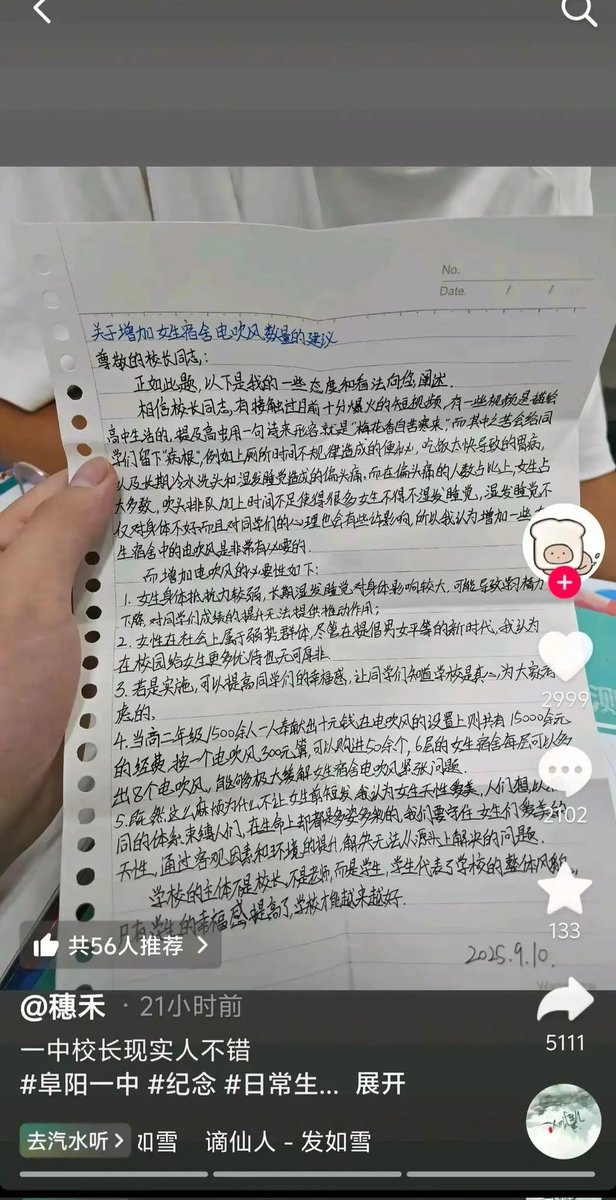 No.
Date. / /
关于增加女生宿舍电吹风数量的建议
尊敬的校长同志:
正如此题,以下是我的一些态度和看法向您阐述.
相信校长同志,有接触过目前十分爆火的短视频,有一些视频是描绘
高中生活的,提及高中用一句诗来形容就是“梅花香自苦寒来”而其中之苦会给同
学们留下“病根”,例如上厕所时间不规律造成的便秘,吃饭太快导致的胃病,
以及长期冷水洗头和湿发睡觉造成的偏头痛,而在偏头痛的人数占比上,女生占
大多数,吹头排队加上时间不足使得很多女生不得不湿发睡觉,湿发睡觉不
仅对身体不好而且对同学们的心理也会有些许影响,所以我认为增加一些
生宿舍中的电吹风是非常有必要的.
而增加电吹风的必要性如下:
1. 女生身体抵抗力较弱,长期湿发睡觉对身体影响较大,可能导致学习精力
下降,对同学们成绩的提升无法提供推动作用;
2. 女性在社会上属于弱势群体,尽管在提倡男女平等的新时代,我认为
在校园给女生更多优待也无可厚非.
3. 若是实施,可以提高同学们的幸福感,让同学们知道学校是真心为大家考
虑的.
4. 当高二年级1500余人一人奉献出十元钱在电吹风的设置上则共有15000余元
的经费,按一个电吹风300元算,可以购进50余个,6层的女生宿舍每层可以多
出8个电吹风,能够极大缓解女生宿舍电吹风紧张问题.
5. 既然这么麻烦为什么不让女生剪短发,我认为女生天性爱美,人们想以
同的体系束缚人们,在生命上却都是多姿多彩的,我们要守住女生们爱美的
天性,通过客观因素和环境的提升,解决无法从源头上解决的问题.
学校的主体不是校长,不是老师,而是学生,学生代表了学校的整体风貌,
只有学生的幸福感提高了,学校才能越来越好.
2025.9.10.
2999
2102
133
5111
共56人推荐 >
@穗禾 · 21小时前
一中校长现实人不错
#阜阳一中 #纪念 #日常生... 展开
去汽水听 > 如雪 谪仙人 - 发如雪